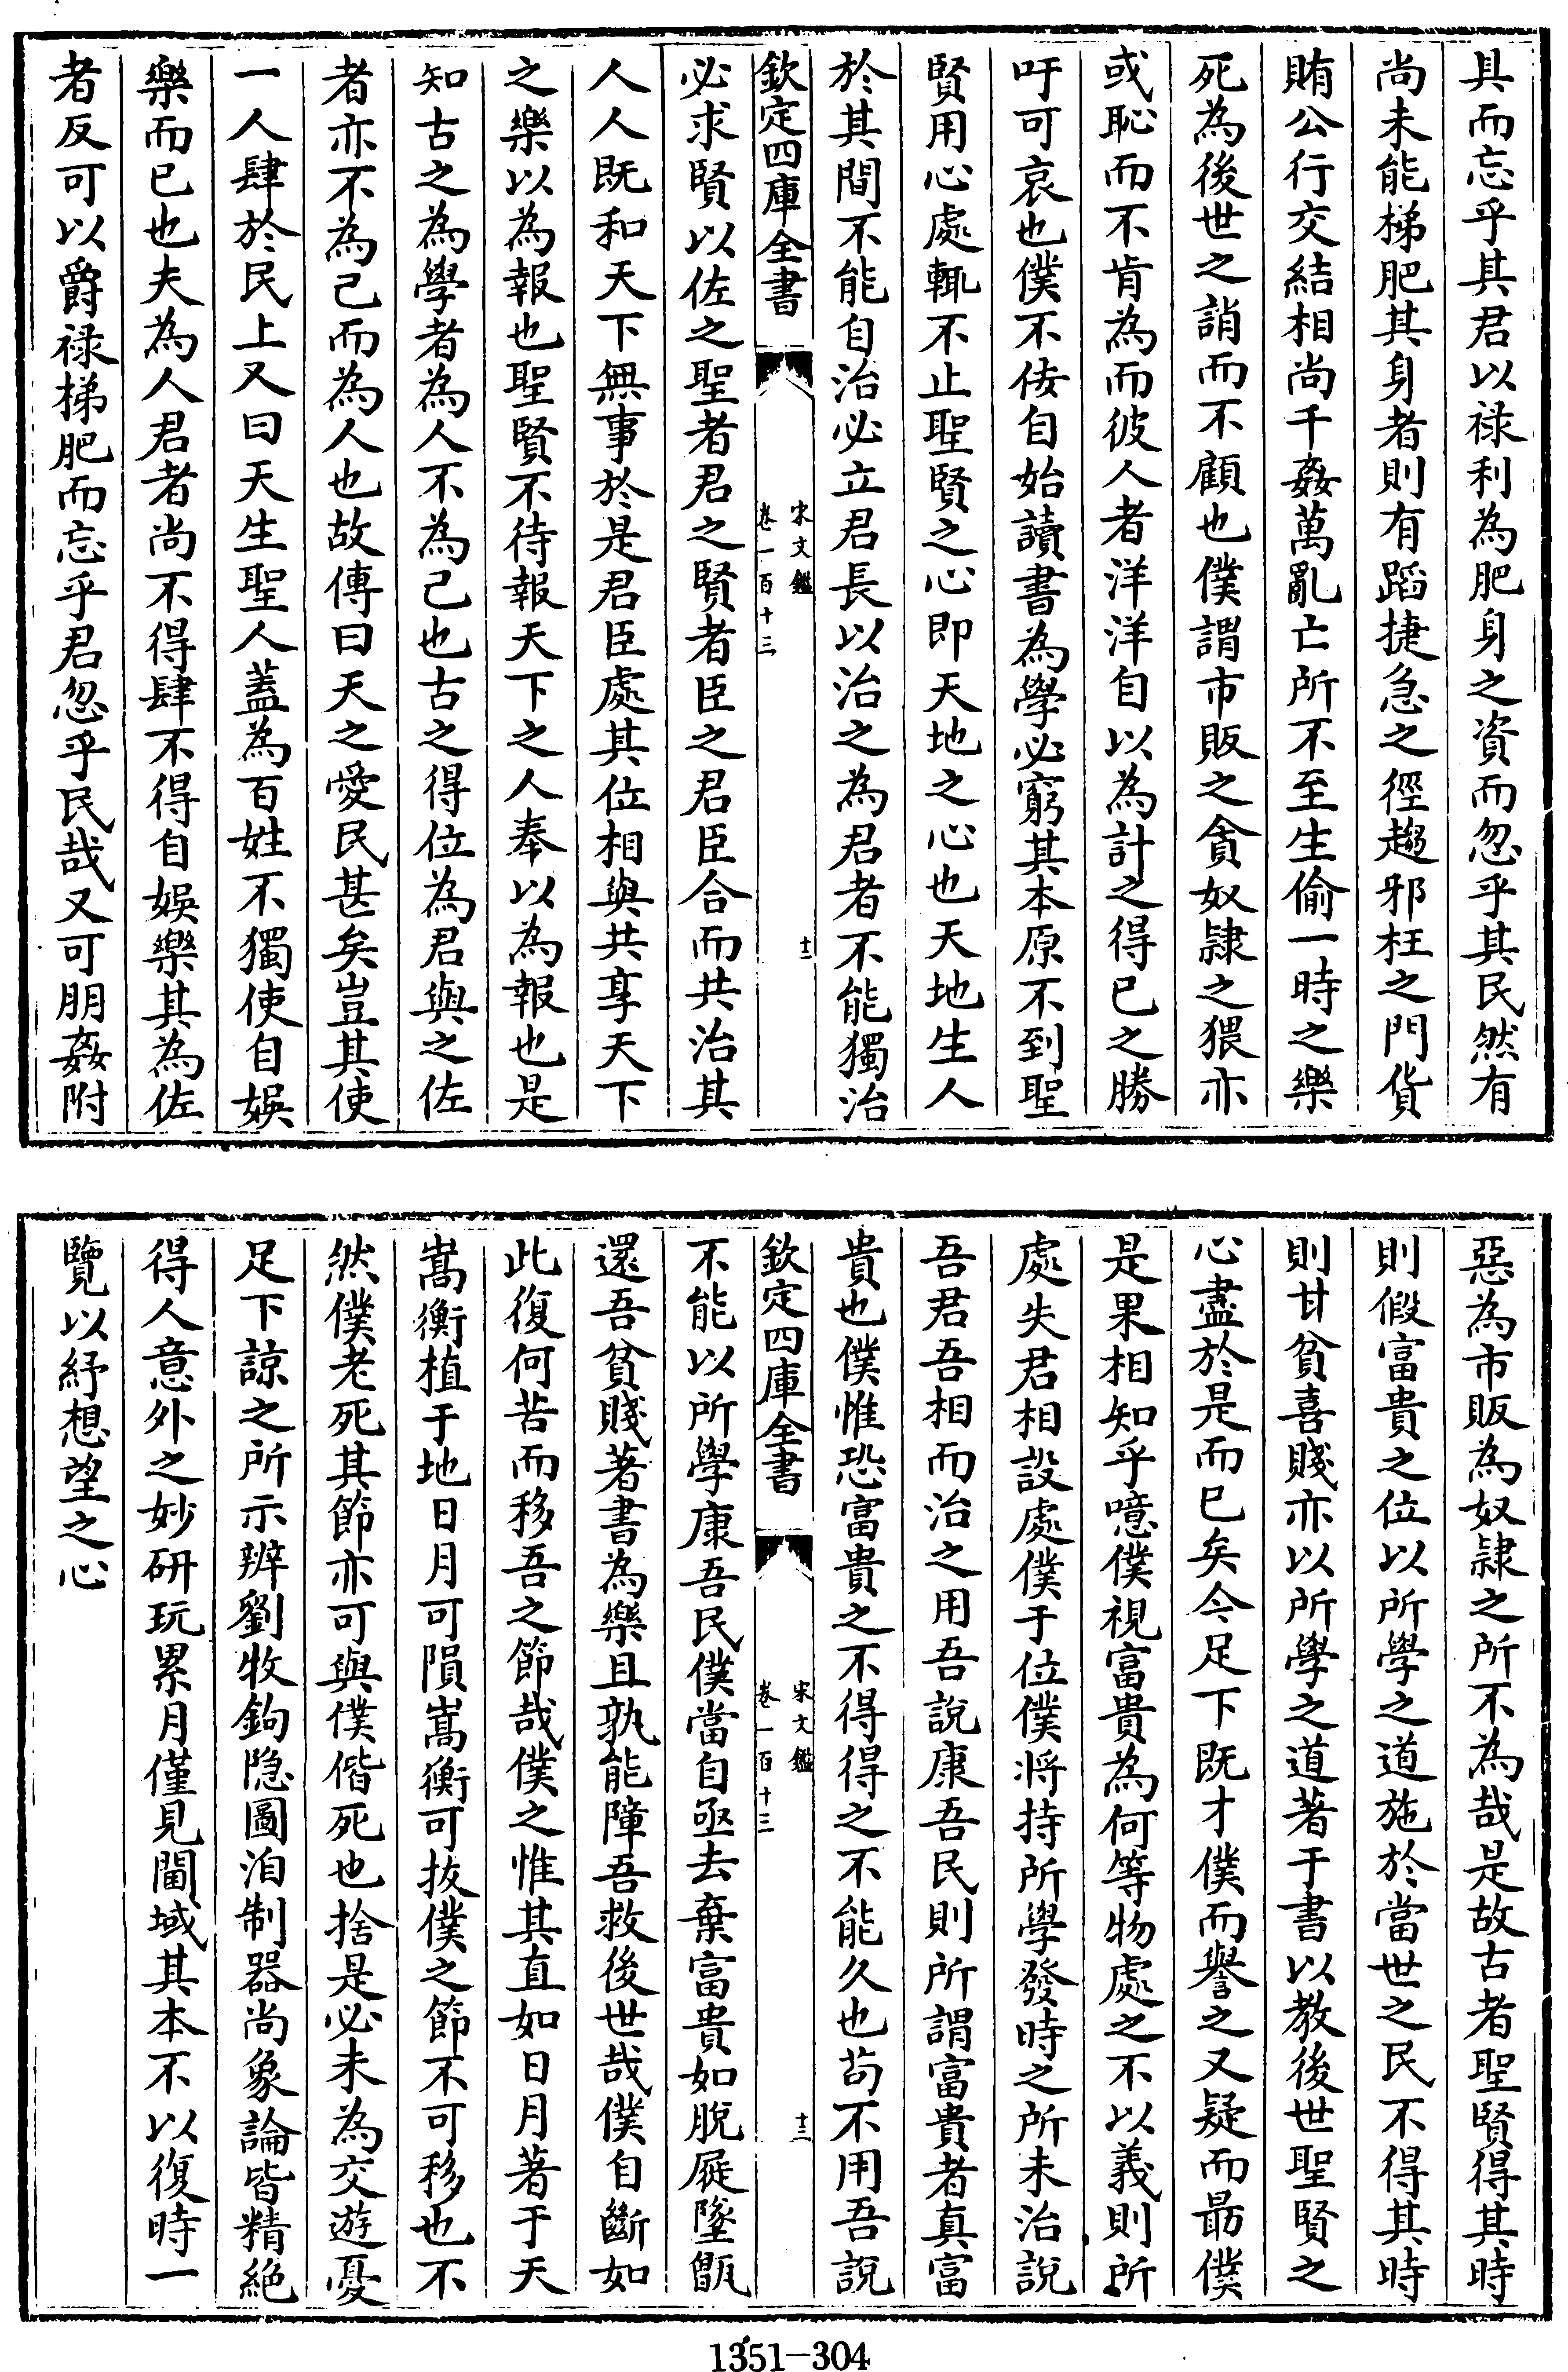 具而忘乎其君以祿利為肥身之資而忽乎其民然有
尚未能梯肥其身者則有蹈捷急之徑趨邪枉之門貨
賄公行交結相尚千姦萬亂亡所不至生偷一時之樂
死為後世之誚而不顧也僕謂市販之貪奴隷之猥亦
或恥而不肯為而彼人者洋洋自以為計之得已之勝
吁可哀也僕不佞自始讀書為學必窮其本原不到聖
賢用心處輒不止聖賢之心即天地之心也天地生人
於其間不能自治必立君長以治之為君者不能獨治
欽定四庫全書
宋文鑑
卷一百十三
十二
必求賢以佐之聖者君之賢者臣之君臣合而共治其
人人既和天下無事於是君臣處其位相與共享天下
之樂以為報也聖賢不待報天下之人奉以為報也是
知古之為學者為人不為己也古之得位為君與之佐
者亦不為己而為人也故傳曰天之愛民甚矣豈其使
一人肆於民上又曰天生聖人蓋為百姓不獨使自娛
樂而已也夫為人君者尚不得肆不得自娛樂其為佐
者反可以爵祿梯肥而忘乎君忽乎民哉又可朋姦附
惡為市販為奴隷之所不為哉是故古者聖賢得其時
則假富貴之位以所學之道施於當世之民不得其時
則甘貧喜賤亦以所學之道著于書以教後世聖賢之
心盡於是而已矣今足下既才僕而譽之又疑而勗僕
是果相知乎噫僕視富貴為何等物處之不以義則所
處失君相設處僕于位僕將持所學發時之所未治說
吾君吾相而治之用吾說康吾民則所謂富貴者真富
貴也僕惟恐富貴之不得得之不能久也苟不用吾說
欽定四庫全書
宋文鑑
卷一百十三
十三
不能以所學康吾民僕當自亟去棄富貴如脫屣墜甑
還吾貧賤著書為樂且孰能障吾救後世哉僕自斷如
此復何苦而移吾之節哉僕之惟其直如日月著于天
嵩衡植于地日月可隕嵩衡可拔僕之節不可移也不
然僕老死其節亦可與僕偕死也捨是必未為交遊憂
足下諒之所示辨劉牧鉤隱圖洎制器尚象論皆精絕
得人意外之妙研玩累月僅見閫域其本不以復時一
覽以紓想望之心
1351-304